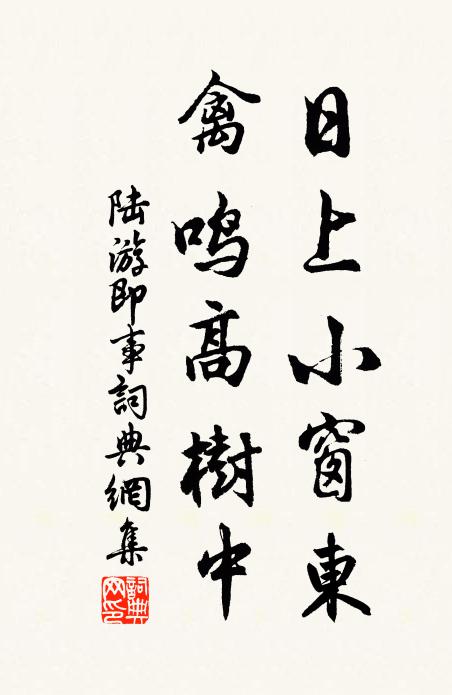 日上小窗東
禽鳴高樹中
陆游即事詞典網集
詞典网印